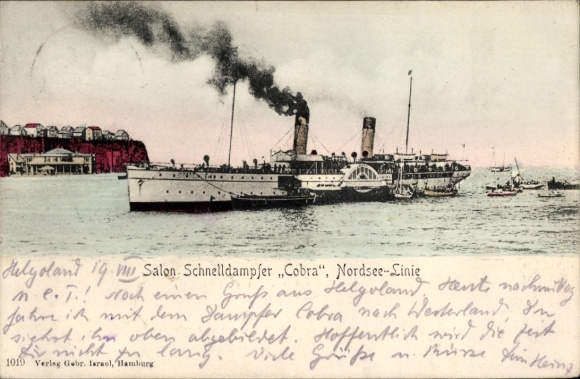 Salon Schnelldampfer „Cobra", Nordsee-Linie
Helgoland 19 VIII
Noch einen Gruß aus Helgoland. Heute nachmittag
fahre ich mit dem Dampfer Cobra nach Westerland. Du
siehst ihn oben abgebildet. Hoffentlich wird die Zeit
nicht zu lang. Viele Grüße u. Küsse Dein Heinz
1019 Verlag Gebr. Israel, Hamburg